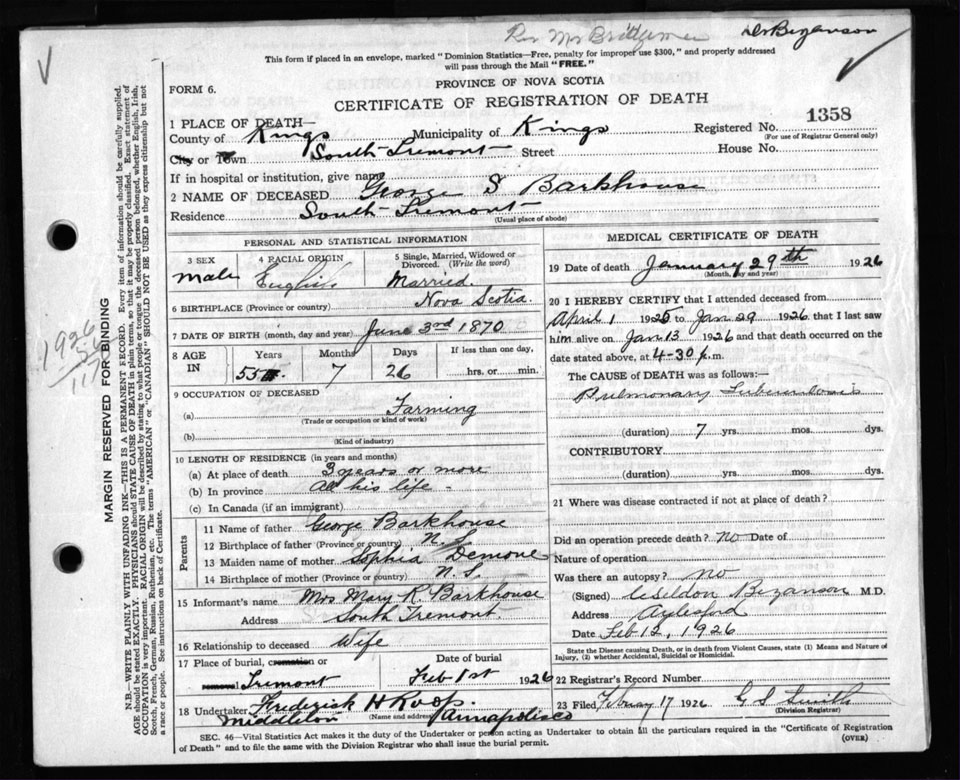 Rev Mr Bridgeman
Dr Bezanson
This form if placed in an envelope, marked "Dominion Statistics—Free, penalty for improper use $300," and properly addressed
will pass through the Mail "FREE."
PROVINCE OF NOVA SCOTIA
FORM 6.
CERTIFICATE OF REGISTRATION OF DEATH
1358
1 PLACE OF DEATH—
County of Kings Municipality of Kings Registered No.
(For use of Registrar General only)
City or Town South Tremont Street House No.
If in hospital or institution, give name
2 NAME OF DECEASED George S Barkhouse
Residence South Tremont
(Usual place of abode)
PERSONAL AND STATISTICAL INFORMATION
3 SEX 4 RACIAL ORIGIN 5 Single, Married, Widowed or Divorced. (Write the word)
male English Married
6 BIRTHPLACE (Province or country) Nova Scotia
7 DATE OF BIRTH (month, day and year) June 3rd 1870
8 AGE IN Years Months Days If less than one day,
55 7 26 hrs. or min.
9 OCCUPATION OF DECEASED
(a) Farming
(Trade or occupation or kind of work)
(b)
(Kind of industry)
10 LENGTH OF RESIDENCE (in years and months)
(a) At place of death 3 years or more
(b) In province All his life
(c) In Canada (if an immigrant)
Parents
11 Name of father George Barkhouse
12 Birthplace of father (Province or country) N. S.
13 Maiden name of mother Sophia Demone
14 Birthplace of mother (Province or country) N. S.
15 Informant's name Mrs Mary R Barkhouse
Address South Tremont.
16 Relationship to deceased Wife
17 Place of burial, cremation or removal Tremont
Date of burial Feb 1st 1926
18 Undertaker Frederick H Roop.
Middleton (Name and address) Annapolis Co
MEDICAL CERTIFICATE OF DEATH
19 Date of death January 29th 1926
(Month, day and year)
20 I HEREBY CERTIFY that I attended deceased from
April 1 1925 to Jan 29 1926 that I last saw
him alive on Jan 13 1926 and that death occurred on the
date stated above, at 4-30 p.m.
The CAUSE of DEATH was as follows:—
Pulmonary Tuberculosis
(duration) 7 yrs. mos. dys.
CONTRIBUTORY
(duration) yrs. mos. dys.
21 Where was disease contracted if not at place of death?
Did an operation precede death? no Date of
Nature of operation
Was there an autopsy? no
(Signed) Bezanson M.D.
Address Aylesford
Date Feb 12, 1926
State the Disease causing Death, or in death from Violent Causes, state (1) Means and Nature of
Injury, (2) whether Accidental, Suicidal or Homicidal.
22 Registrar's Record Number
23 Filed February 17 1926 G S Smith
(Division Registrar)
SEC. 46—Vital Statistics Act makes it the duty of the Undertaker or person acting as Undertaker to obtain all the particulars required in the "Certificate of Registration
of Death" and to file the same with the Division Registrar who shall issue the burial permit.
(OVER)
MARGIN RESERVED FOR BINDING
N.B.—WRITE PLAINLY WITH UNFADING INK—THIS IS A PERMANENT RECORD. Every item of information should be carefully supplied.
AGE should be stated EXACTLY. PHYSICIANS should STATE CAUSE OF DEATH in plain terms, so that it may be properly classified. Exact statement of
OCCUPATION is very important. RACIAL ORIGIN will be described by stating to what people or tongue the deceased person belonged, whether English, Irish,
Scotch, French, German, Russian, Ruthenian, etc. The terms "AMERICAN" or "CANADIAN" SHOULD NOT BE USED as they express citizenship but not
a race or people. See instructions on back of Certificate.
1926